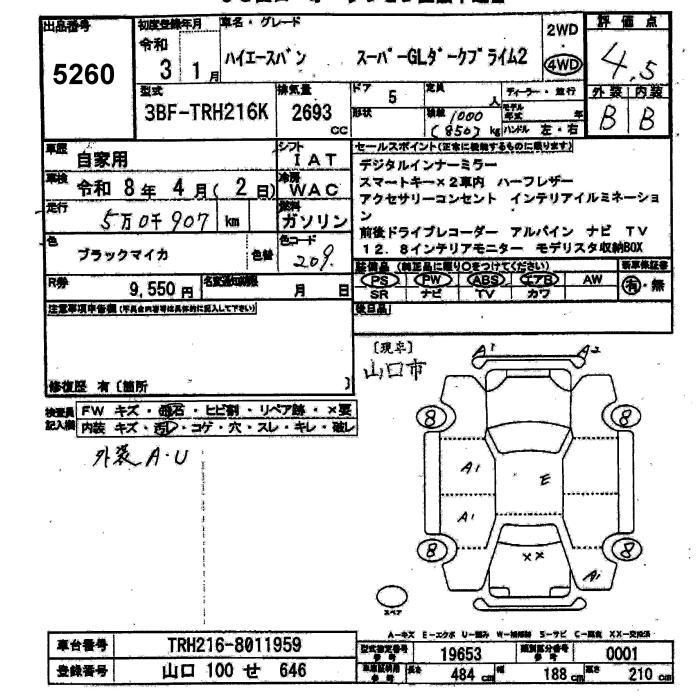 出品番号
5260
初度登録年月
令和
3 1月
車名・グレード
ハイエースバン スーパーGLダークプライム2
2WD
4WD
評価点
4.5
外装 内装
B B
型式
3BF-TRH216K
排気量
2693
cc
ドア
5
形状
定員
人
積載
1000
(850) kg
ディーラー・並行
モデル年式
年
ハンドル 左・右
車歴
自家用
シフト
IAT
車検
令和 8年 4月(2日)
冷房
WAC
走行
5万0千907 km
燃料
ガソリン
色
ブラックマイカ
色替
色コード
209
R券
9,550円
名変通知期限
月 日
セールスポイント(正常に機能するものに限ります)
デジタルインナーミラー
スマートキー×2車内 ハーフレザー
アクセサリーコンセント インテリアイルミネーショ
ン
前後ドライブレコーダー アルパイン ナビ TV
12.8インテリアモニター モデリスタ収納BOX
装備品(純正品に限り○をつけてください)
PS PW ABS エアB AW
SR ナビ TV カワ
新車保証書
有・無
注意事項申告欄(不具合内容等は具体的に記入して下さい)
後日品
修復歴 有〔箇所 〕
検査員記入欄
FW キズ・飛石・ヒビ割・リペア跡・×要
内装 キズ・汚レ・コゲ・穴・スレ・キレ・破レ
外装 A・U
〔現車〕
山口市
A1 A2
8 8
A1
E
A1
8 8
××
A1
スペア
A-キズ E-エクボ U-凹み W-補修跡 S-サビ C-腐食 XX-交換済
車台番号
TRH216-8011959
登録番号
山口 100 せ 646
型式指定番号
参考
19653
類別区分番号
参考
0001
車庫証明用
参考
長さ 484 cm 幅 188 cm 高さ 210 cm